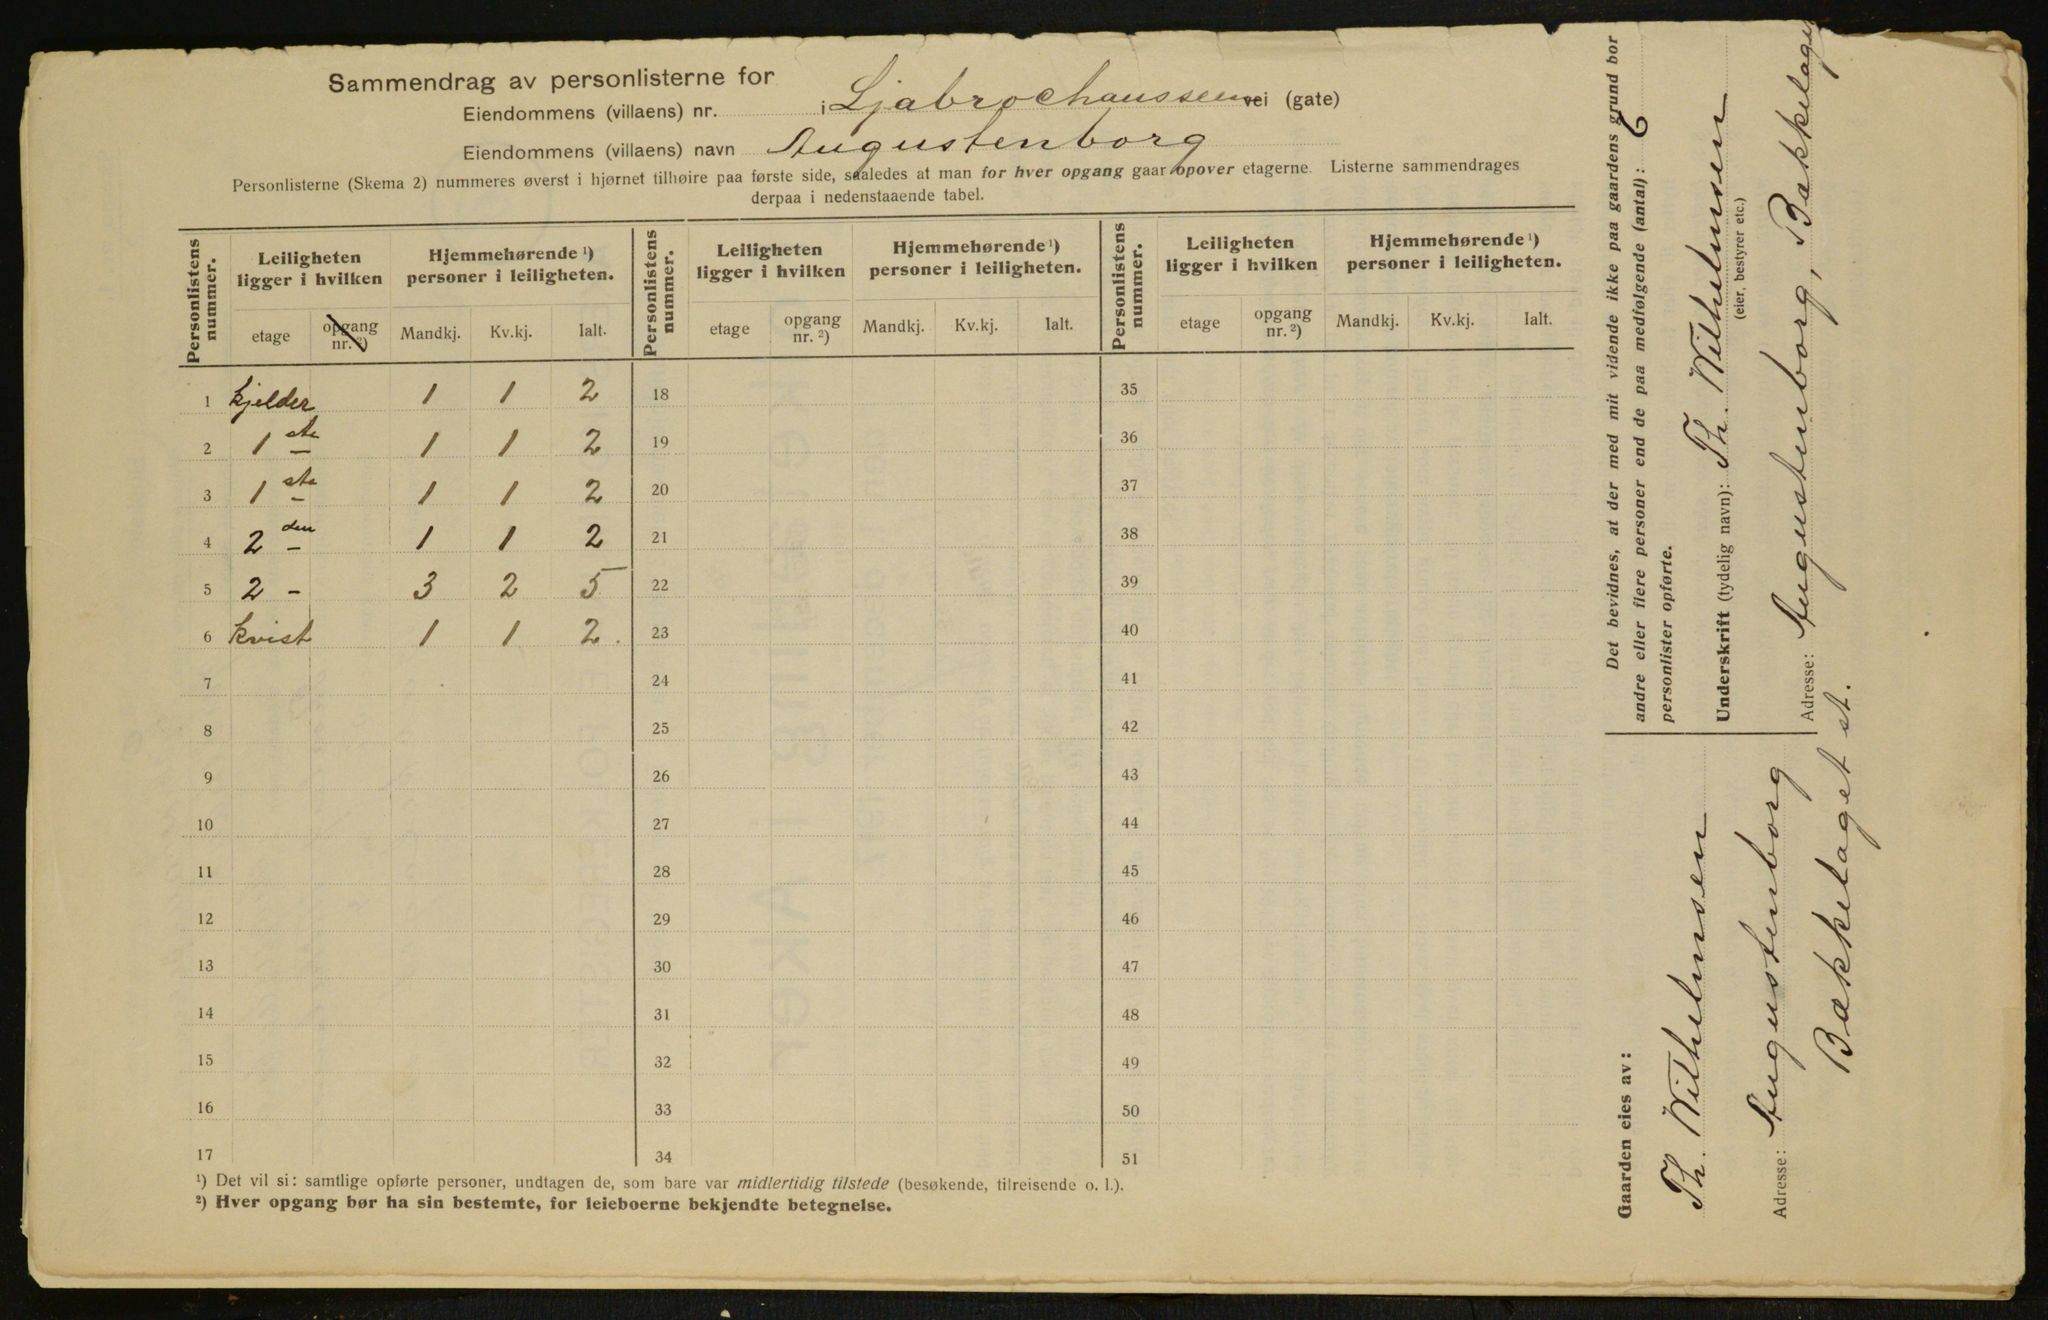 Sammendrag av personlisterne for
Eiendommens (villaens) nr. i Ljabrochausseen vei (gate)
Eiendommens (villaens) navn Augustenborg
Personlisterne (Skema 2) nummeres øverst i hjørnet tilhøire paa første side, saaledes at man for hver opgang gaar opover etagerne. Listerne sammendrages
derpaa i nedenstaaende tabel.
Personlistens nummer. Leiligheten ligger i hvilken Hjemmehørende ¹) personer i leiligheten. Personlistens nummer. Leiligheten ligger i hvilken Hjemmehørende ¹) personer i leiligheten. Personlistens nummer. Leiligheten ligger i hvilken Hjemmehørende ¹) personer i leiligheten.
etage opgang nr. ²) Mandkj. Kv.kj. Ialt. etage opgang nr. ²) Mandkj. Kv.kj. Ialt. etage opgang nr. ²) Mandkj. Kv.kj. Ialt.
1 kjelder 1 1 2 18 35
2 1ste 1 1 2 19 36
3 1ste 1 1 2 20 37
4 2den 1 1 2 21 38
5 2 - 3 2 5 22 39
6 kvist 1 1 2. 23 40
7 24 41
8 25 42
9 26 43
10 27 44
11 28 45
12 29 46
13 30 47
14 31 48
15 32 49
16 33 50
17 34 51
¹) Det vil si: samtlige opførte personer, undtagen de, som bare var midlertidig tilstede (besøkende, tilreisende o. l.).
²) Hver opgang bør ha sin bestemte, for leieboerne bekjendte betegnelse.
Det bevidnes, at der med mit vidende ikke paa gaardens grund bor
andre eller flere personer end de paa medfølgende (antal): 6
personlister opførte.
Underskrift (tydelig navn): Th. Wilhelmsen
(eier, bestyrer etc.)
Adresse: Augustenborg, Bækkelaget
Gaarden eies av:
Th. Wilhelmsen
Adresse: Augustenborg
Bækkelaget st.